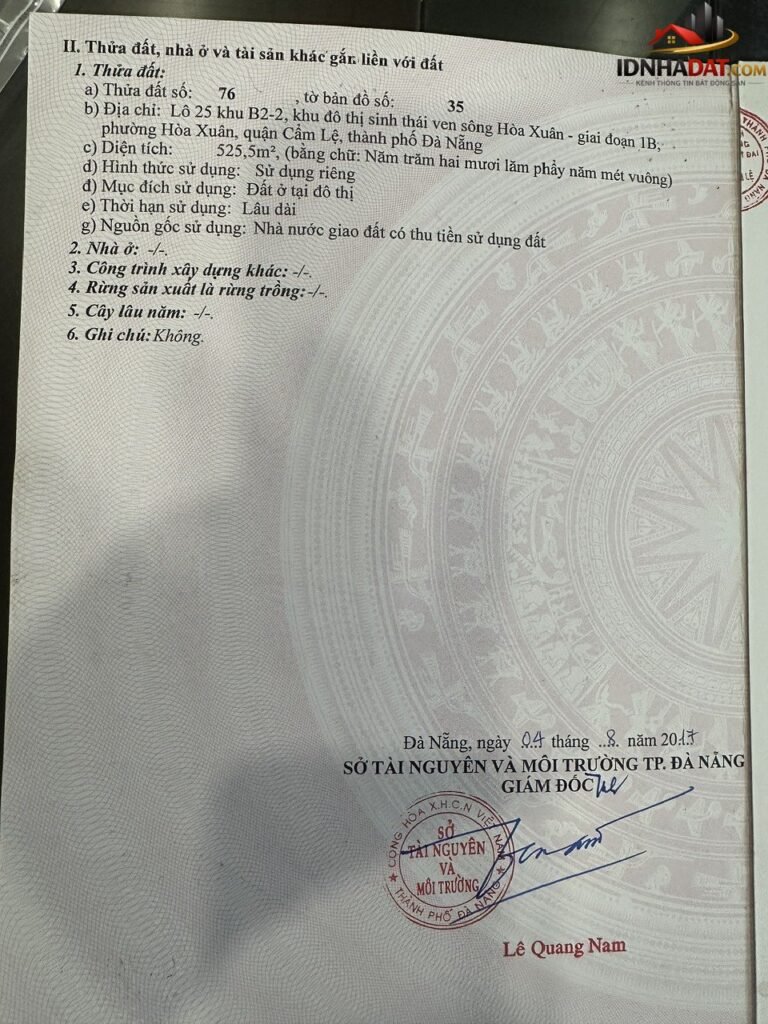 IDNHADAT.COM
KÊNH THÔNG TIN BẤT ĐỘNG SẢN
II. Thửa đất, nhà ở và tài sản khác gắn liền với đất
1. Thửa đất:
a) Thửa đất số: 76 , tờ bản đồ số: 35
b) Địa chỉ: Lô 25 khu B2-2, khu đô thị sinh thái ven sông Hòa Xuân - giai đoạn 1B,
phường Hòa Xuân, quận Cẩm Lệ, thành phố Đà Nẵng
c) Diện tích: 525,5m², (bằng chữ: Năm trăm hai mươi lăm phẩy năm mét vuông)
d) Hình thức sử dụng: Sử dụng riêng
đ) Mục đích sử dụng: Đất ở tại đô thị
e) Thời hạn sử dụng: Lâu dài
g) Nguồn gốc sử dụng: Nhà nước giao đất có thu tiền sử dụng đất
2. Nhà ở: -/-.
3. Công trình xây dựng khác: -/-.
4. Rừng sản xuất là rừng trồng: -/-.
5. Cây lâu năm: -/-.
6. Ghi chú: Không.
Đà Nẵng, ngày 04 tháng 8 năm 2017
SỞ TÀI NGUYÊN VÀ MÔI TRƯỜNG TP. ĐÀ NẴNG
GIÁM ĐỐC
CỘNG HÒA X.H.C.N VIỆT NAM
SỞ
TÀI NGUYÊN
VÀ
MÔI TRƯỜNG
THÀNH PHỐ ĐÀ NẴNG
Lê Quang Nam